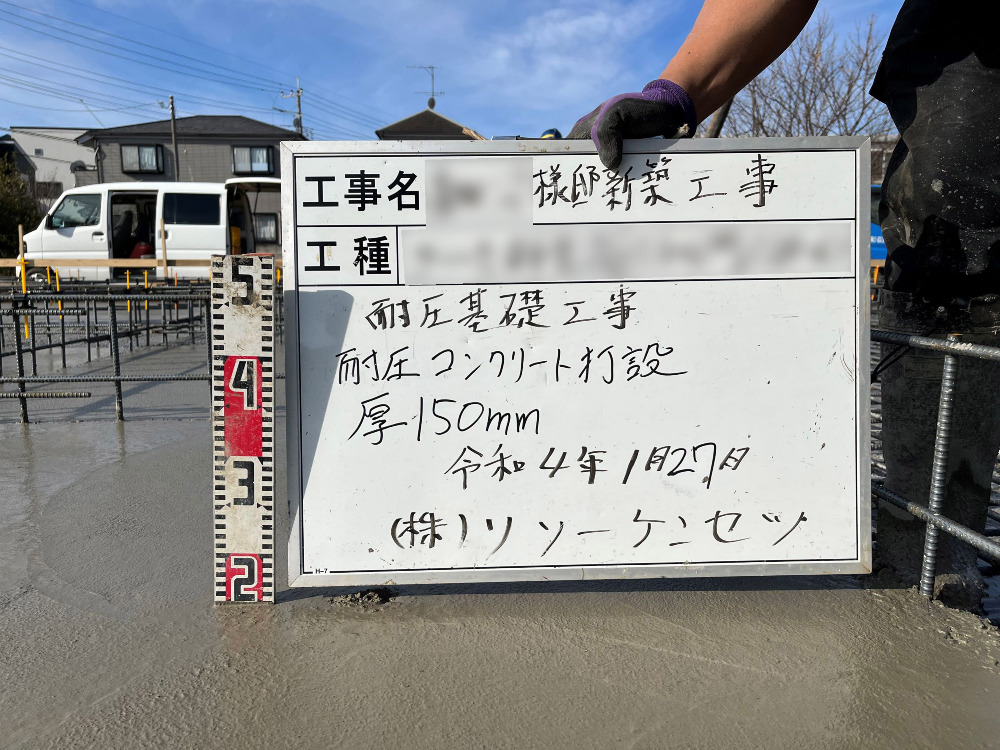 工事名 様邸新築工事
工種
耐圧基礎工事
耐圧コンクリート打設
厚150mm
令和4年1月27日
(株)リソーケンセツ
H-7
5
4
3
2